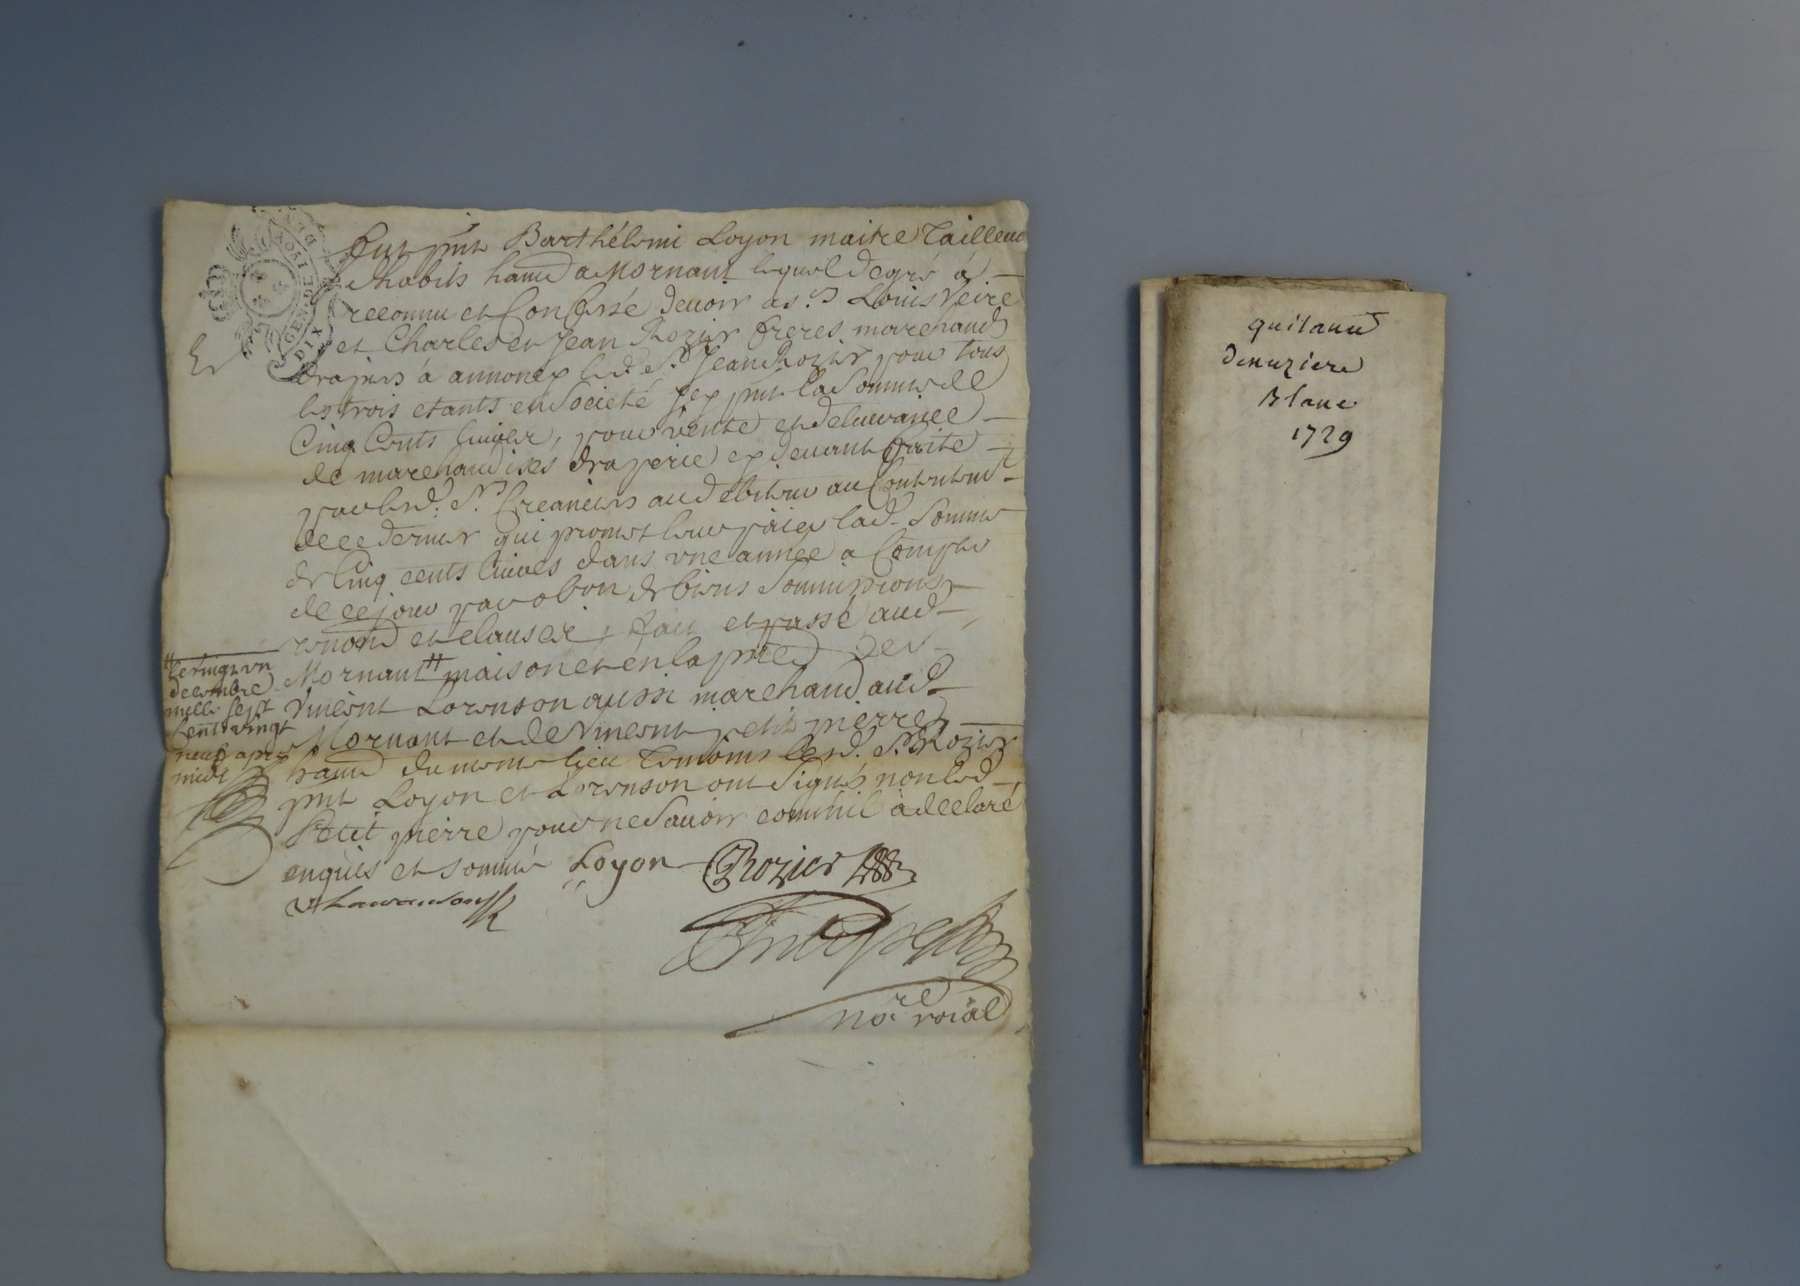 GEN. DE LYON
DIX
Fut pnt Barthélemi Loyon maitre Tailleur
dhabits habnt a Mornant lequel de gré á
reconnu et Confessé deuoir a s.rs Louis Veire
et Charles et Jean Rozier freres marchands
drapiers á annonex led. Sr. Jean Rozier pour tous
les trois etants en Societé pnt la Somme de
Cinq Cents liures, pour vente et deliurance
de marchandises draperie cy deuant faite
par lesd. Srs. Creanciers au debiteur au Contentemt
de ce dernier qui promet leur païer lad. Somme
de Cinq cents liures dans vne année a Compter
de ce jour par obon de biens Soumissions
renond et clauses, fait et passé aud
Mornant # maison et en la pnce de sr
Vincent Lorenson aussi marchand aud
Mornant et de Vincent petit pierre
habnt du meme lieu temoins led. Sr. Rozier
pnt Loyon et Lorenson ont Signé, non led
Petit pierre pour ne Sauoir comme il a declaré
enquis et sommé Loyon Rozier
# le vingt vn
decembre
mille sept
Cent vingt
neuf apres
midi
nore roial
quitance
denuziere
Blanc
1729